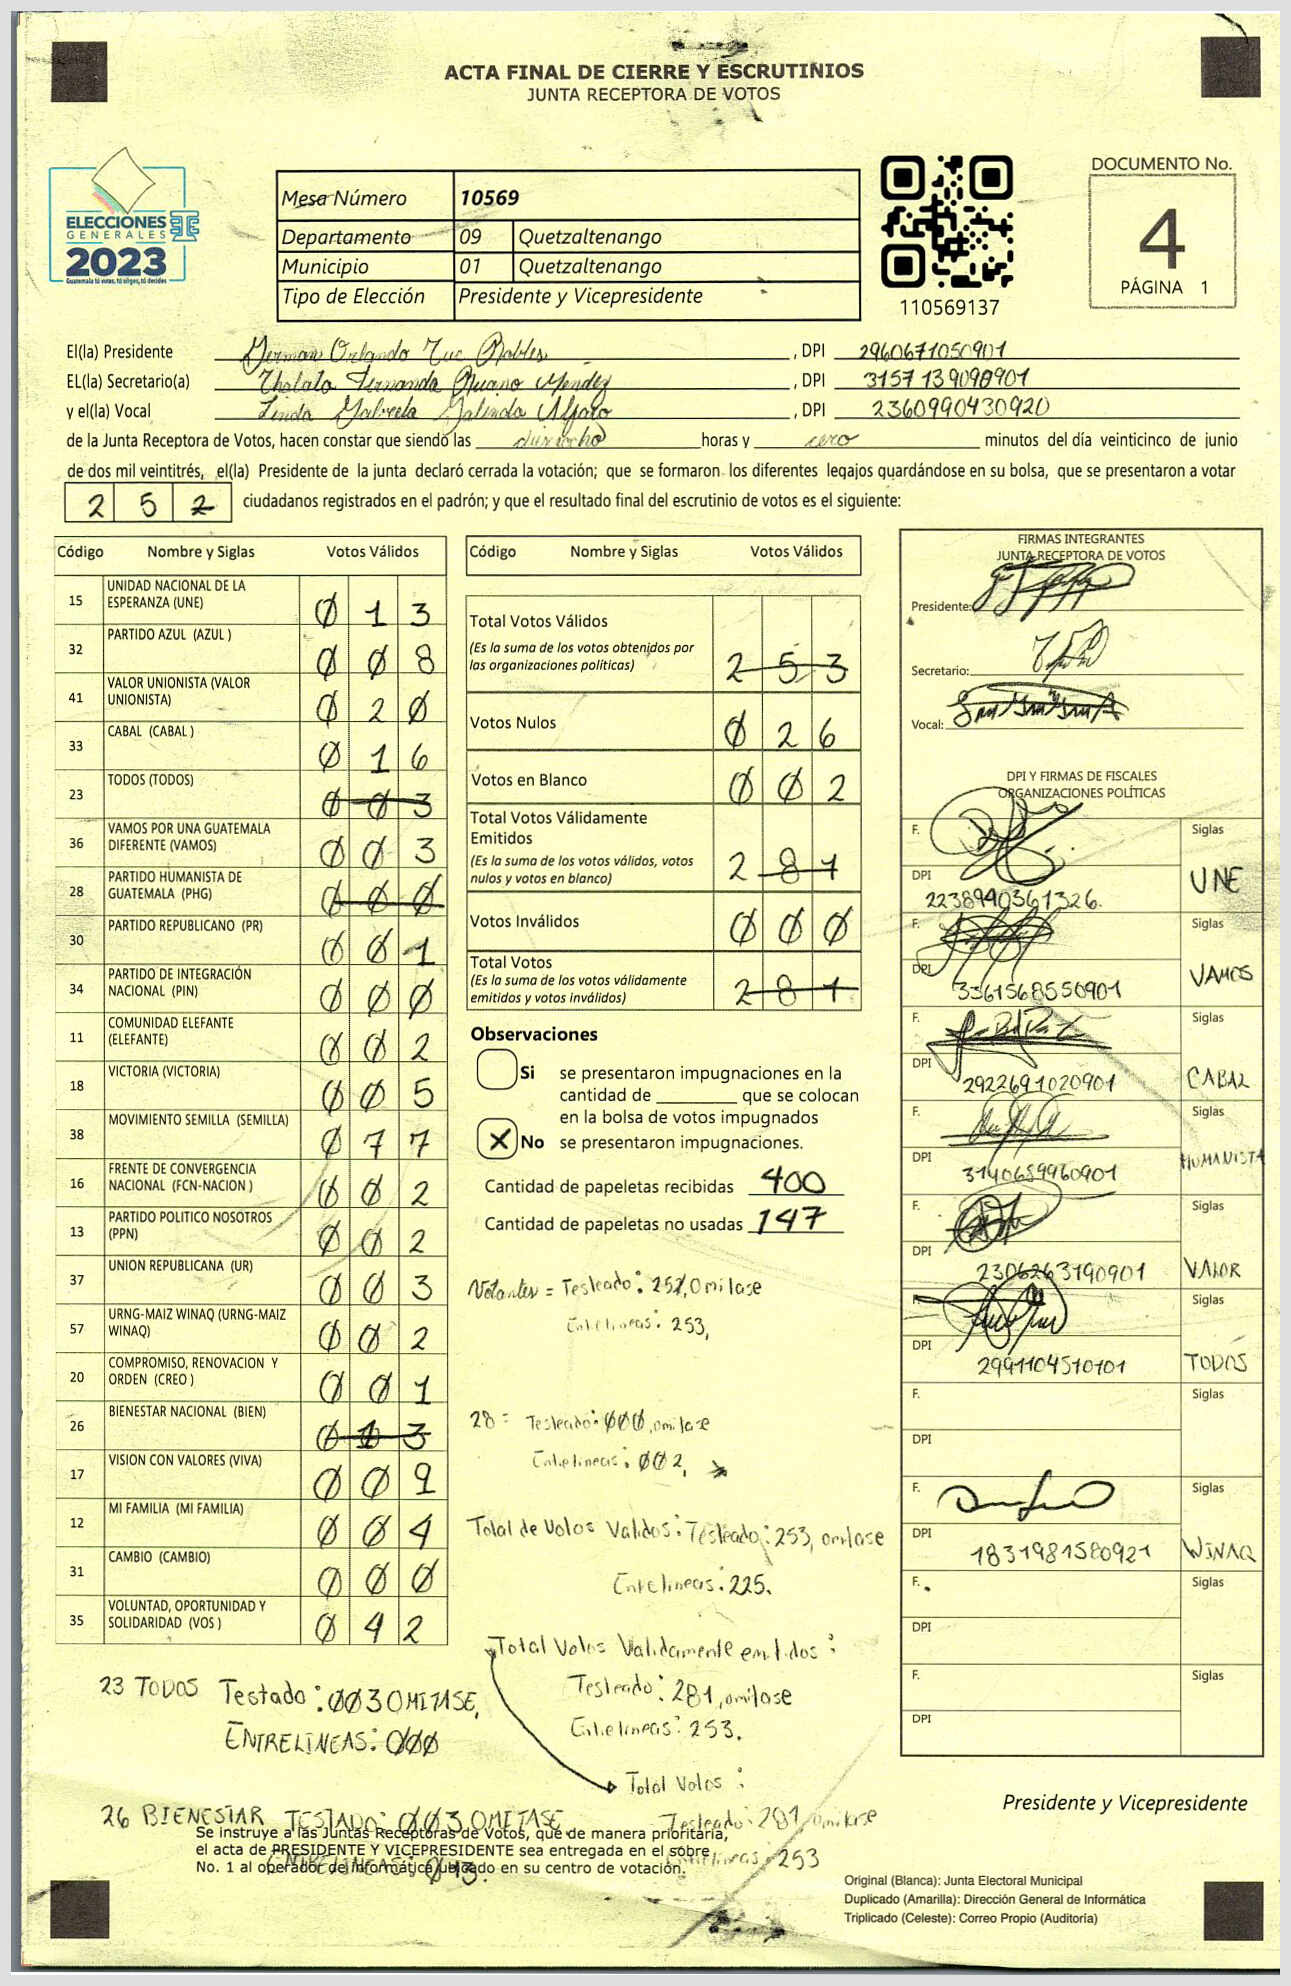 ACTA FINAL DE CIERRE Y ESCRUTINIOS
JUNTA RECEPTORA DE VOTOS
ELECCIONES
GENERALES
2023
Guatemala tú votas, tú eliges, tú decides
Mesa Número 10569
Departamento 09 Quetzaltenango
Municipio 01 Quetzaltenango
Tipo de Elección Presidente y Vicepresidente
110569137
DOCUMENTO No.
4
PÁGINA 1
El(la) Presidente German Orlando Tuc Robles, DPI 2960671050901
EL(la) Secretario(a) Fernanda Ruano Méndez, DPI 3157139090901
y el(la) Vocal Linda Gabriela Galindo Alfaro, DPI 2360990430920
de la Junta Receptora de Votos, hacen constar que siendo las dieciocho horas y cero minutos del día veinticinco de junio
de dos mil veintitrés, el(la) Presidente de la junta declaró cerrada la votación; que se formaron los diferentes legajos quardándose en su bolsa, que se presentaron a votar
2 5 2 ciudadanos registrados en el padrón; y que el resultado final del escrutinio de votos es el siguiente:
Código Nombre y Siglas Votos Válidos
15 UNIDAD NACIONAL DE LA ESPERANZA (UNE) 0 1 3
32 PARTIDO AZUL (AZUL ) 0 0 8
41 VALOR UNIONISTA (VALOR UNIONISTA) 0 2 0
33 CABAL (CABAL ) 0 1 6
23 TODOS (TODOS) 0 0 3
36 VAMOS POR UNA GUATEMALA DIFERENTE (VAMOS) 0 0 3
28 PARTIDO HUMANISTA DE GUATEMALA (PHG) 0 0 0
30 PARTIDO REPUBLICANO (PR) 0 0 1
34 PARTIDO DE INTEGRACIÓN NACIONAL (PIN) 0 0 0
11 COMUNIDAD ELEFANTE (ELEFANTE) 0 0 2
18 VICTORIA (VICTORIA) 0 0 5
38 MOVIMIENTO SEMILLA (SEMILLA) 0 7 7
16 FRENTE DE CONVERGENCIA NACIONAL (FCN-NACION ) 0 0 2
13 PARTIDO POLITICO NOSOTROS (PPN) 0 0 2
37 UNION REPUBLICANA (UR) 0 0 3
57 URNG-MAIZ WINAQ (URNG-MAIZ WINAQ) 0 0 2
20 COMPROMISO, RENOVACION Y ORDEN (CREO ) 0 0 1
26 BIENESTAR NACIONAL (BIEN) 0 1 3
17 VISION CON VALORES (VIVA) 0 0 9
12 MI FAMILIA (MI FAMILIA) 0 0 4
31 CAMBIO (CAMBIO) 0 0 0
35 VOLUNTAD, OPORTUNIDAD Y SOLIDARIDAD (VOS ) 0 4 2
23 TODOS Testado: 003 OMITASE,
ENTRELINEAS: 000
26 BIENESTAR TESTADO: 003 OMITASE
ENTRELINEAS: 013.
Código Nombre y Siglas Votos Válidos
Total Votos Válidos
(Es la suma de los votos obtenidos por
las organizaciones políticas) 2 5 3
Votos Nulos 0 2 6
Votos en Blanco 0 0 2
Total Votos Válidamente
Emitidos
(Es la suma de los votos válidos, votos
nulos y votos en blanco) 2 8 1
Votos Inválidos 0 0 0
Total Votos
(Es la suma de los votos válidamente
emitidos y votos inválidos) 2 8 1
Observaciones
Si se presentaron impugnaciones en la
cantidad de ________ que se colocan
en la bolsa de votos impugnados
X No se presentaron impugnaciones.
Cantidad de papeletas recibidas 400
Cantidad de papeletas no usadas 147
Votantes = Testeado: 252, Omitase
Entrelineas: 253,
28 = Testeado: 000, omitase
Entrelineas: 002,
Total de Votos Validos: Testeado: 253, omitase
Entrelineas: 225.
Total Votos Validamente emitidos:
Testeado: 281, omitase
Entrelineas: 253.
Total Votos:
Testeado: 281 omitase
Entrelineas: 253
FIRMAS INTEGRANTES
JUNTA RECEPTORA DE VOTOS
Presidente:
Secretario:
Vocal:
DPI Y FIRMAS DE FISCALES
ORGANIZACIONES POLÍTICAS
F. Siglas
DPI 2238940361326. UNE
F. Siglas
DPI 3361568550901 VAMOS
F. Siglas
DPI 2922691020901 CABAL
F. Siglas
DPI 3140659960901 HUMANISTA
F. Siglas
DPI 2306263190901 VALOR
F. Siglas
DPI 2991104510101 TODOS
F. Siglas
DPI
F. Siglas
DPI 1831981580921 WINAQ
F. Siglas
DPI
F. Siglas
DPI
Presidente y Vicepresidente
Se instruye a las Juntas Receptoras de Votos, que de manera prioritaria,
el acta de PRESIDENTE Y VICEPRESIDENTE sea entregada en el sobre
No. 1 al operador de informática ubicado en su centro de votación.
Original (Blanca): Junta Electoral Municipal
Duplicado (Amarilla): Dirección General de Informática
Triplicado (Celeste): Correo Propio (Auditoría)